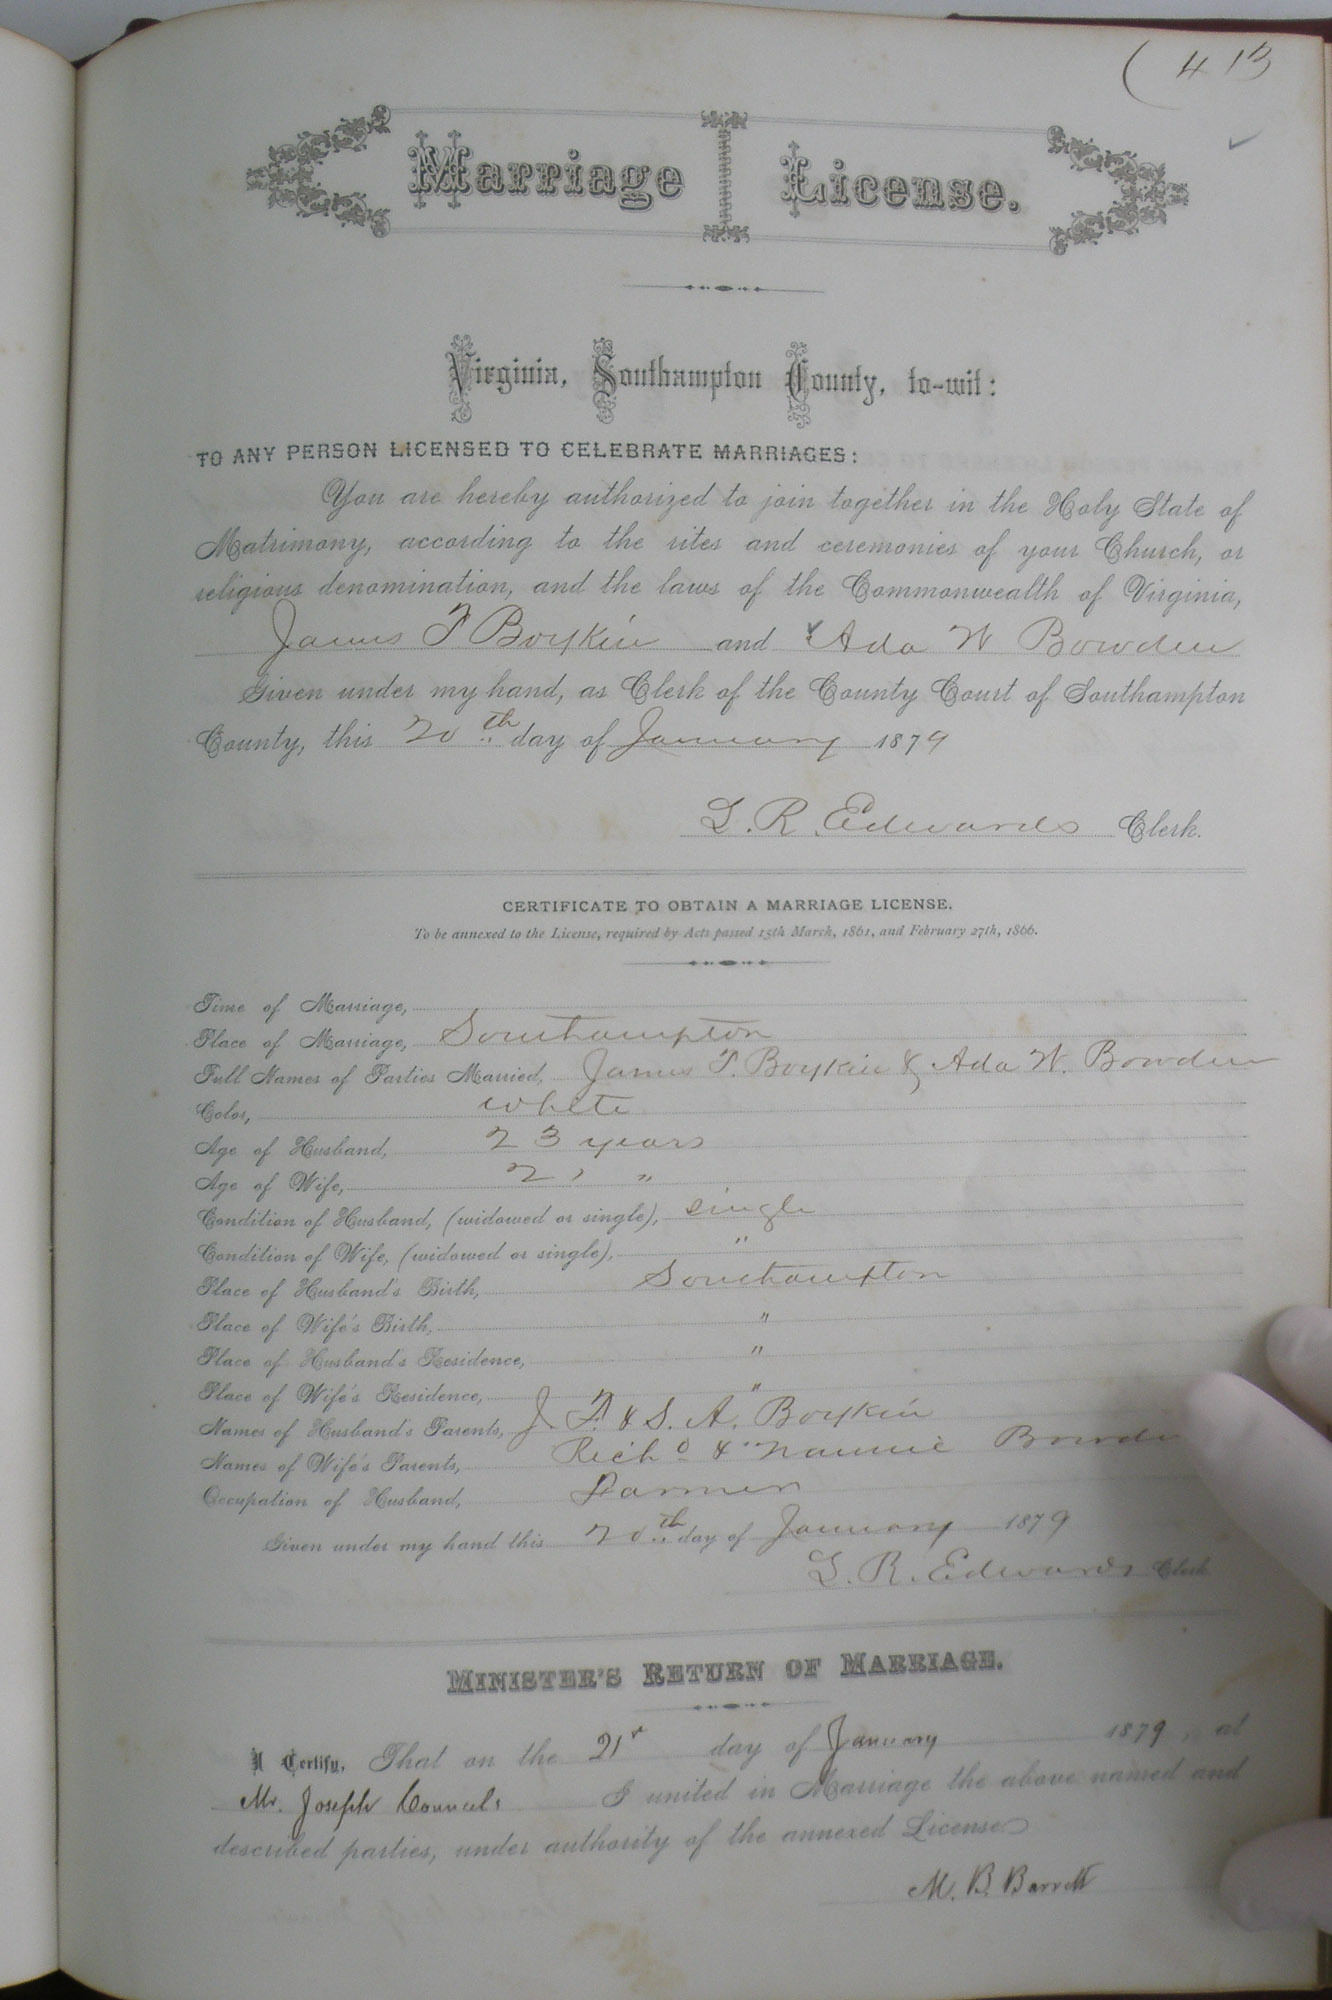 (413
Marriage License.
Virginia, Southampton County, to-wit:
TO ANY PERSON LICENSED TO CELEBRATE MARRIAGES:
You are hereby authorized to join together in the Holy State of
Matrimony, according to the rites and ceremonies of your Church, or
religious denomination, and the laws of the Commonwealth of Virginia,
James F Boykin and Ada W Bowden
Given under my hand, as Clerk of the County Court of Southampton
County, this 20th day of January 1879
L. R. Edwards Clerk.
CERTIFICATE TO OBTAIN A MARRIAGE LICENSE.
To be annexed to the License, required by Acts passed 15th March, 1861, and February 27th, 1866.
Time of Marriage,
Place of Marriage, Southampton
Full Names of Parties Married, James F. Boykin & Ada W. Bowden
Color, white
Age of Husband, 23 years
Age of Wife, 21 "
Condition of Husband, (widowed or single), single
Condition of Wife, (widowed or single), "
Place of Husband's Birth, Southampton
Place of Wife's Birth, "
Place of Husband's Residence, "
Place of Wife's Residence, "
Names of Husband's Parents, J. F. & S. A. Boykin
Names of Wife's Parents, Richd & Nannie
Occupation of Husband, Farmer
Given under my hand this 20th day of January 1879
L. R. Edwards Clerk
MINISTER'S RETURN OF MARRIAGE.
I Certify, That on the 21st day of January 1879, at
Mr. Joseph Councils I united in Marriage the above named and
described parties, under authority of the annexed License.
M. B. Barrett